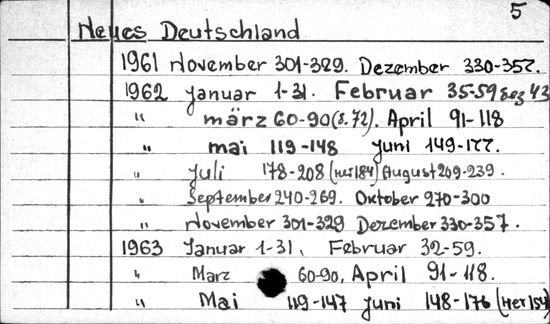 5
Neues Deutschland
1961 November 301-329. Dezember 330-357.
1962 Januar 1-31. Februar 35-59 43
" märz 60-90 (s. 72). April 91-118
" mai 119-148 Juni 149-177.
" Juli 178-208 (нет 184) August 209-239.
" September 240-269. Oktober 270-300
" November 301-329 Dezember 330-357.
1963 Januar 1-31, Februar 32-59.
" März 60-90, April 91-118.
" Mai 119-147 Juni 148-176 (нет 154)